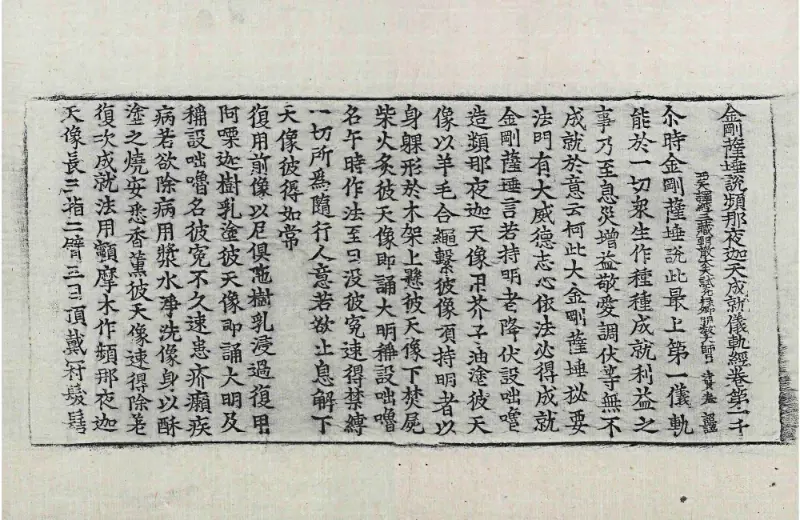 金剛薩埵說頻那夜迦天成就儀軌經卷第二 千
西天譯經三藏朝散大夫試光祿卿明教大師臣法賢奉 詔譯
尒時金剛薩埵說此最上第一儀軌
能於一切衆生作種種成就利益之
事乃至息災增益敬愛調伏等無不
成就於意云何此大金剛薩埵祕要
法門有大威德志心依法必得成就
金剛薩埵言若持明者降伏設咄嚕
造頻那夜迦天像用芥子油塗彼天
像以羊毛合繩繫彼像項持明者以
身躶形於木架上懸彼天像下焚屍
柴火炙彼天像即誦大明稱設咄嚕
名午時作法至日沒彼寃速得禁縛
一切所爲隨行人意若欲止息解下
天像彼得如常
復用前像以尼俱陁樹乳浸過復用
阿㗚迦樹乳塗彼天像即誦大明及
稱設咄嚕名彼寃不久速患疥癩疾
病若欲除病用漿水淨洗像身以酥
塗之燒安悉香薰彼天像速得除差
復次成就法用顖摩木作頻那夜迦
天像長三指二臂三目頂戴冠髮髻